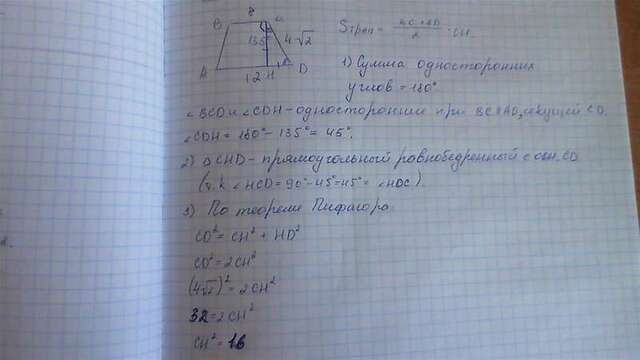 B 8 C
135° 4√2
A 12 H D
Sтрап = (BC+AD)/2 · CH.
1) Сумма односторонних
углов = 180°
∠BCD и ∠CDH - односторонние при BC∥AD, секущей CD.
∠CDH = 180° - 135° = 45°.
2) △CHD - прямоугольный равнобедренный с осн. CD
(т.к ∠HCD = 90° - 45° = 45° = ∠HDC).
3) По теореме Пифагора
CD² = CH² + HD²
CD² = 2CH²
(4√2)² = 2CH²
32 = 2CH²
CH² = 16